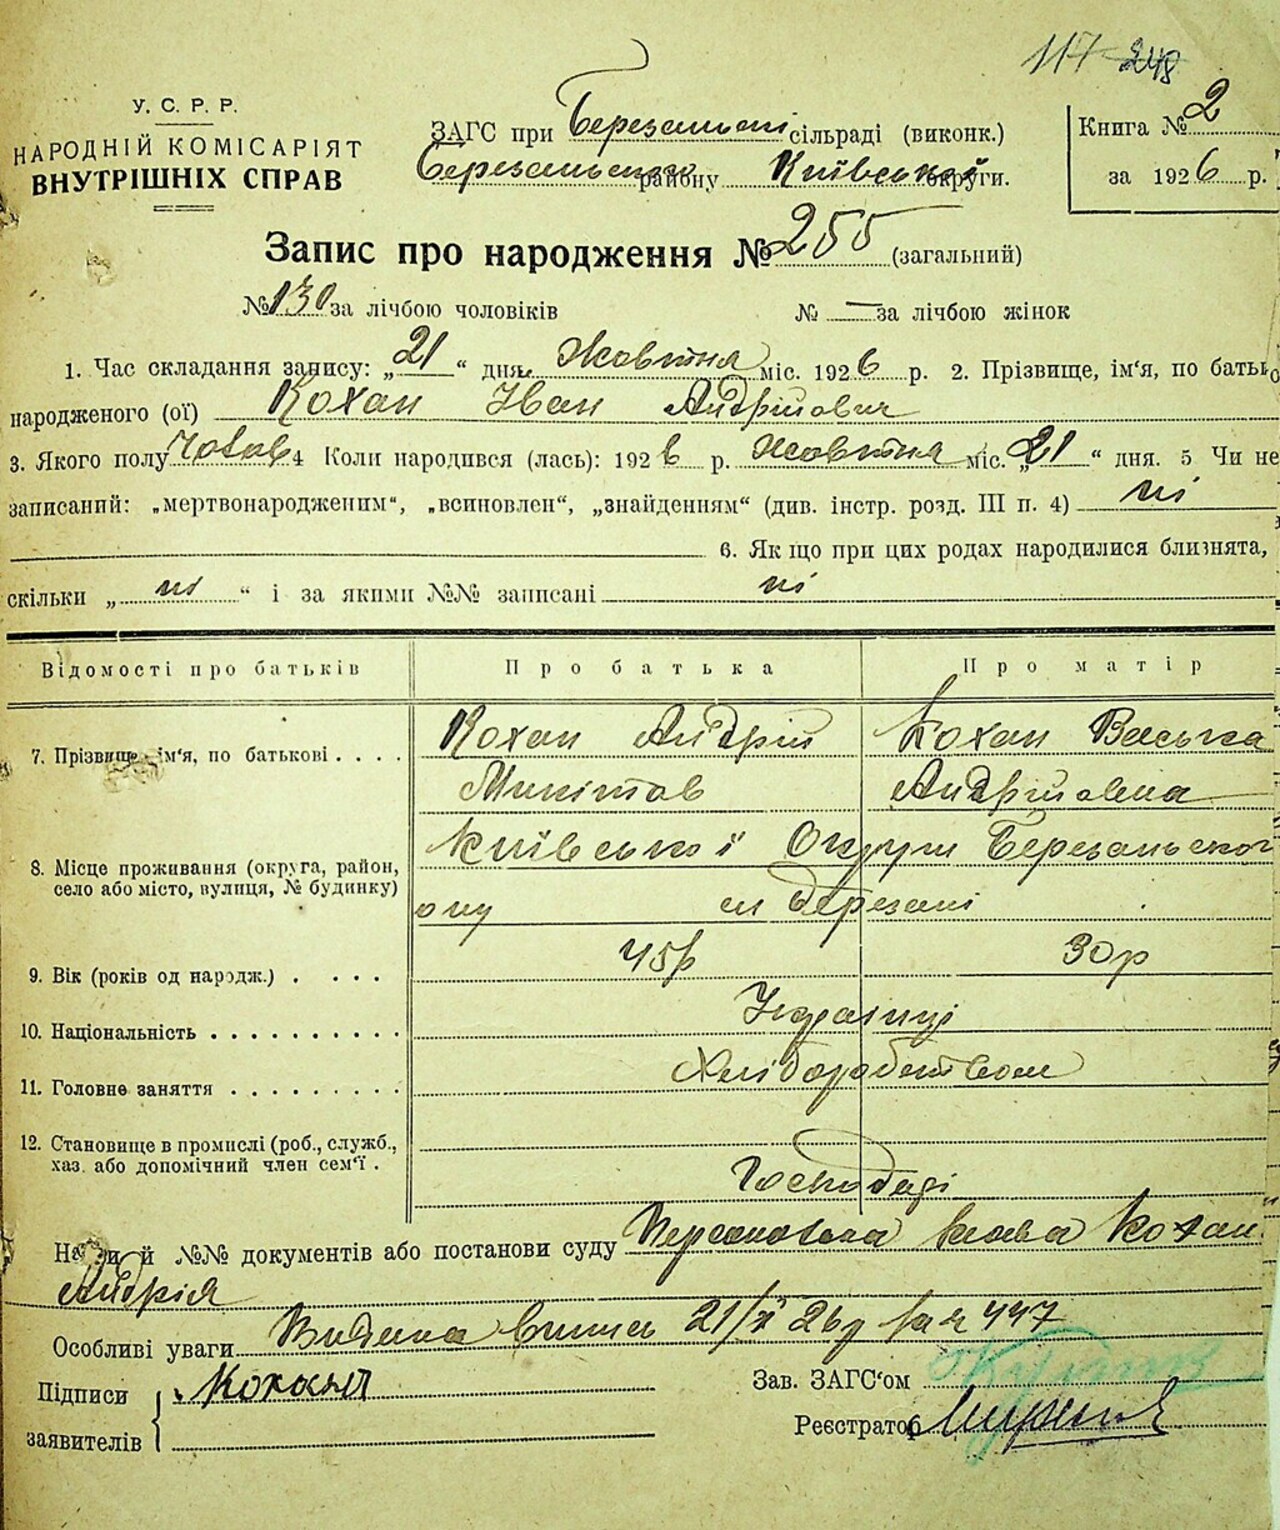 117 248
У. С. Р. Р.
НАРОДНІЙ КОМІСАРІЯТ
ВНУТРІШНІХ СПРАВ
ЗАГС при Березанські сільраді (виконк.)
Березанського району Київської округи.
Книга № 2
за 1926 р.
Запис про народження № 255 (загальний)
№ 130 за лічбою чоловіків № — за лічбою жінок
1. Час складання запису: „21“ дня Жовтня міс. 1926 р. 2. Прізвище, ім'я, по батько
народженого (ої) Кохан Іван Андрійович
3. Якого полу Чолов 4 Коли народився (лась): 1926 р. Жовтня міс. „21“ дня. 5 Чи не
записаний: „мертвонародженим“, „всиновлен“, „знайденням“ (див. інстр. розд. III п. 4) ні
6. Якщо при цих родах народилися близнята,
скільки „ні“ і за якими №№ записані ні
Відомості про батьків Про батька Про матір
7. Прізвище, ім'я, по батькові . . . . Кохан Андрій Кохан Васька
Микитов Андрійовна
8. Місце проживання (округа, район, село або місто, вулиця, № будинку) Київської Округи Березанського
ону м Березані
9. Вік (років од народж.) . . . . 45р 30р
10. Національність . . . . . . . . . . Українці
11. Головне заняття . . . . . . . . . Хліборобством
12. Становище в промислі (роб., служб.,
хаз. або допомічний член сем'ї . Господарі
Назви й №№ документів або постанови суду Персональна заява Кохан
Андрія
Особливі уваги Видана випись 21/X 26р за № 447
Підписи Кохан
заявителів
Зав. ЗАГС'ом
Реєстратор